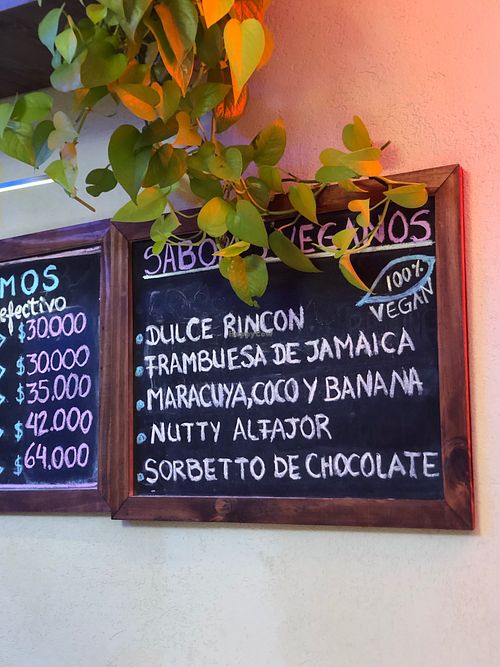 MOS
efectivo
$30.000
$30.000
$35.000
$42.000
$64.000
SABO VEGANOS
100%
VEGAN
DULCE RINCON
FRAMBUESA DE JAMAICA
MARACUYA, COCO Y BANANA
NUTTY ALFAJOR
SORBETTO DE CHOCOLATE